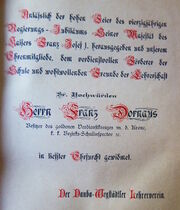 Anläßlich der hohen Feier des vierzigjährigen
Regierungs-Jubiläums Seiner Majestät des
Kaisers Franz Josef I. herausgegeben und unserem
Ehrenmitgliede, dem verdienstvollen Förderer der
Schule und wohlwollenden Freunde der Lehrerschaft
Sr. Hochwürden
Herrn Franz
Besitzer des goldenen Verdienstkreuzes m. d. Krone,
k. k. Bezirks-Schulinspector
in tiefster Ehrfurcht gewidmet.
Der Dauba-Wegstädtler Lehrerverein.